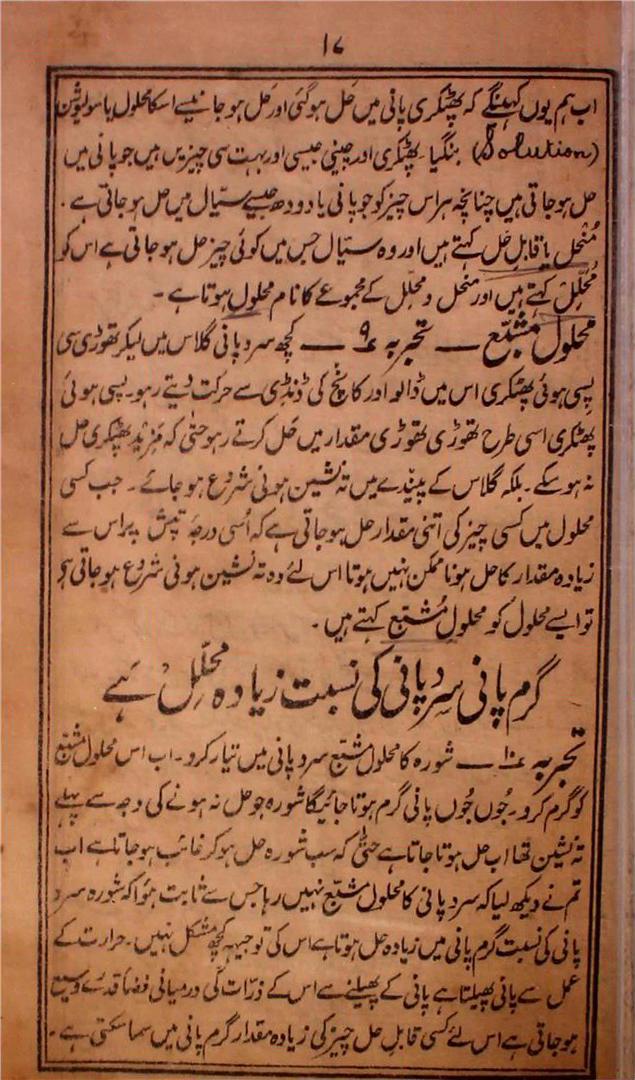 ۱۷
اب ہم یوں کہینگے کہ پھٹکری پانی میں حَل ہو گئی اور حَل ہو جانیسے اسکا محلول یا سولیوشن
(Solution) بنگیا۔ پھٹکری اور چینی جیسی اور بہت سی چیزیں ہیں جو پانی میں
حل ہو جاتی ہیں چنانچہ ہر اس چیز کو جو پانی یا دودھ جیسے سیّال میں حل ہو جاتی ہے۔
مُنْحل یا قابلِ حَل کہتے ہیں اور وہ سیّال جس میں کوئی چیز حل ہو جاتی ہے اس کو
مُحلِّل کہتے ہیں اور منحل و محلِّل کے مجموعے کا نام محلول ہوتا ہے۔
محلولِ مشبّع — تجربہ ۹ — کچھ سرد پانی گلاس میں لیکر تھوڑی سی
پسی ہوئی پھٹکری اس میں ڈالو اور کانچ کی ڈنڈی سے حرکت دیتے رہو۔ پسی ہوئی
پھٹکری اسی طرح تھوڑی تھوڑی مقدار میں حَل کرتے رہو حتٰی کہ مَزید پھٹکری حل
نہ ہو سکے۔ بلکہ گلاس کے پیندے میں تہ نشین ہونی شروع ہو جائے۔ جب کسی
محلول میں کسی چیز کی اتنی مقدار حل ہو جاتی ہے کہ اُسی درجۂ تپش پر اس سے
زیادہ مقدار کا حل ہونا ممکن نہیں ہوتا اس لئے وہ تہ نشین ہونی شروع ہو جاتی ہے
تو ایسے محلول کو محلول مُشبّع کہتے ہیں۔
گرم پانی سرد پانی کی نسبت زیادہ محلِّل ہے
تجربہ ۱۰ — شورہ کا محلول مشبّع سرد پانی میں تیار کرو۔ اب اس محلول مشبّع
کو گرم کرو۔ جُوں جُوں پانی گرم ہوتا جائیگا شورہ جو حل نہ ہونے کی وجہ سے پہلے
تہ نشین تھا اب حل ہوتا جاتا ہے حتّٰی کہ سب شورہ حل ہو کر غائب ہو جاتا ہے اب
تم نے دیکھ لیا کہ سرد پانی کا محلول مشبّع نہیں رہا جس سے ثابت ہؤا کہ شورہ سرد
پانی کی نسبت گرم پانی میں زیادہ حل ہوتا ہے اس کی توجیہہ کچھ مشکل نہیں۔ حرارت کے
عمل سے پانی پھیلتا ہے پانی کے پھیلنے سے اس کے ذرّات کی درمیانی فضا قدرے وسیع
ہو جاتی ہے اس لئے کسی قابلِ حل چیز کی زیادہ مقدار گرم پانی میں سما سکتی ہے۔